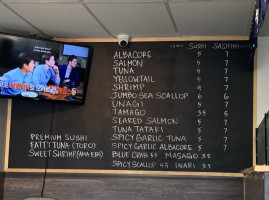 SUSHI SASHIMI
ALBACORE 5 7
SALMON 5 7
TUNA 5 7
YELLOWTAIL 5 7
SHRIMP 5 7
JUMBO SEA SCALLOP 6 7
UNAGI 5 7
TAMAGO 3.5 5
SEARED SALMON 5 7
TUNA TATAKI 5 7
SPICY GARLIC TUNA 5 7
SPICY GARLIC ALBACORE 5 7
BLUE CRAB 3.5 MASAGO 3.5
SPICY SCALLOP 4.5 INARI 3
PREMIUM SUSHI
FATTY TUNA (TORO)
SWEET SHRIMP (AMA EBI)